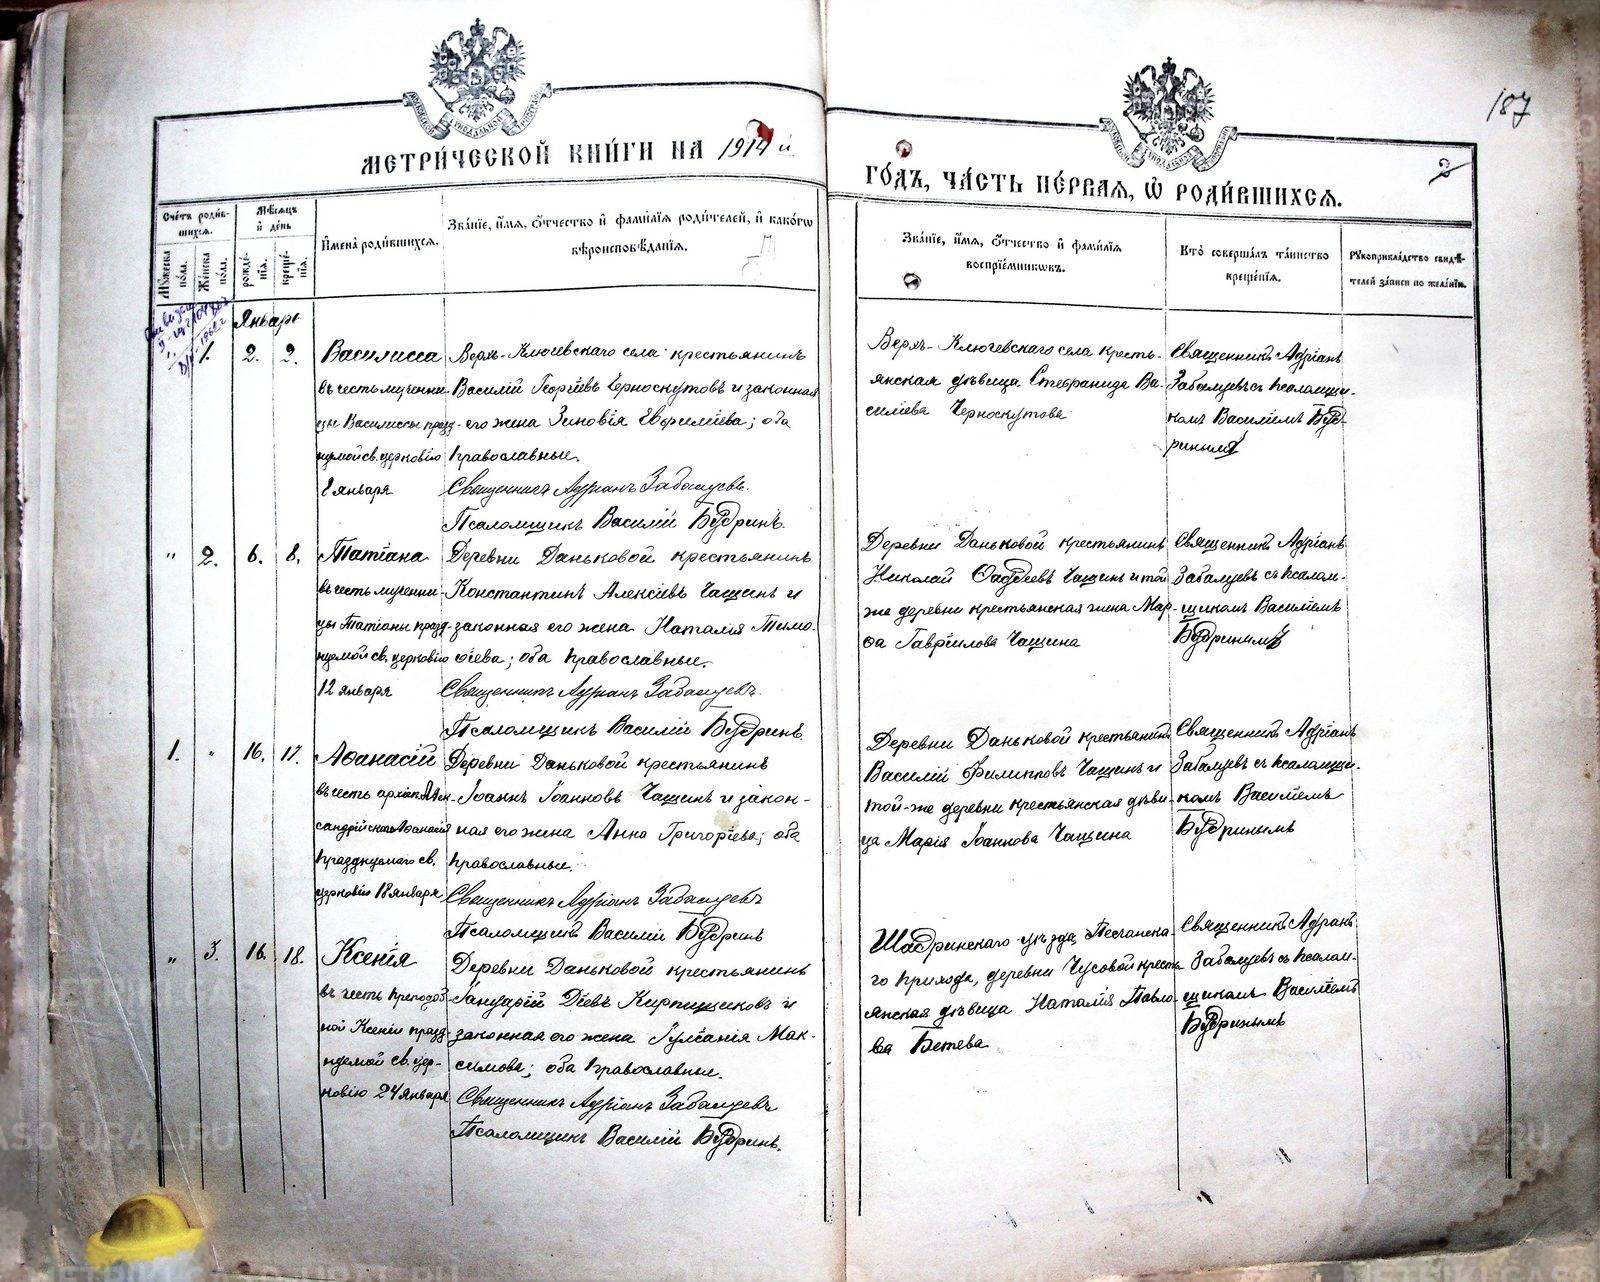 187
МЕТРИ́ЧЕСКОЙ КНИ́ГИ НА 1914 й
ГО́ДЪ, ЧА́СТЬ ПЕ́РВАЯ, Ѽ РОДИ́ВШИХСЯ.
2
Сче́тъ роди́в-
шихся.
Мѣ́сяцъ
и҆ де́нь
И҆мена̀ роди́вшихся.
Зва́нїе, и҆́мя, о҆́тчество и҆ фами́лїя роди́телей, и҆ како́гѡ
вѣроисповѣ́данїя.
Зва́нїе, и҆́мя, о҆́тчество и҆ фами́лїя
воспрїе́мникѡвъ.
Кто̀ соверша́лъ та́инство
креще́нїя.
Рукоприкла́дство свидѣ́-
телей за́писи по жела́нїю.
Му́жеска
по́ла.
Же́нска
по́ла.
рожде́-
нїя.
креще́-
нїя.
Январь
1. 2. 2.
Василисса
въ честь мучени-
цы Василиссы празд-
нуемой св. церковію
8 января
Верхъ-Ключевскаго села крестьянинъ
Василій Георгіевъ Черноскутовъ и законная
его жена Зиновія Евфиміева; оба
православные.
Священникъ Адріанъ Забалуевъ.
Псаломщикъ Василій Будринъ.
Верхъ-Ключевскаго села кресть-
янская дѣвица Стефанида Ва-
силіева Черноскутова
Священникъ Адріанъ
Забалуевъ съ псаломщи-
комъ Василіемъ Буд-
ринымъ
" 2. 6. 8.
Татіана
въ честь мучени-
цы Татіаны празд-
нуемой св. церковію
12 января
Деревни Даньковой крестьянинъ
Константинъ Алексіевъ Чащинъ и
законная его жена Наталія Тимо-
ѳіева; оба православные.
Священникъ Адріанъ Забалуевъ.
Псаломщикъ Василій Будринъ.
Деревни Даньковой крестьянинъ
Николай Ѳаддеевъ Чащинъ и той
же деревни крестьянская жена Мар-
ѳа Гавріилова Чащина
Священникъ Адріанъ
Забалуевъ съ псалом-
щикомъ Василіемъ
Будринымъ
1. " 16. 17.
Аѳанасій
въ честь архіеп. Алек-
сандрійскаго Аѳанасія
празднуемаго св.
церковію 18 января
Деревни Даньковой крестьянинъ
Іоаннъ Іоанновъ Чащинъ и закон-
ная его жена Анна Григоріева; оба
православные.
Священникъ Адріанъ Забалуевъ
Псаломщикъ Василій Будринъ
Деревни Даньковой крестьянинъ
Василій Филипповъ Чащинъ и
той-же деревни крестьянская дѣви-
ца Марія Іоаннова Чащина
Священникъ Адріанъ
Забалуевъ съ псаломщи-
комъ Василіемъ
Будринымъ
" 3. 16. 18.
Ксенія
въ честь преподоб-
ной Ксеніи празд-
нуемой св. цер-
ковію 24 января
Деревни Даньковой крестьянинъ
Іануарій Діевъ Кирпищиковъ и
законная его жена Іуліанія Мак-
симова; оба православные.
Священникъ Адріанъ Забалуевъ
Псаломщикъ Василій Будринъ.
Шадринскаго уѣзда, Песчанска-
го прихода, деревни Чусовой кресть-
янская дѣвица Наталія Павло-
ва Бетева
Священникъ Адріанъ
Забалуевъ съ псалом-
щикомъ Василіемъ
Будринымъ